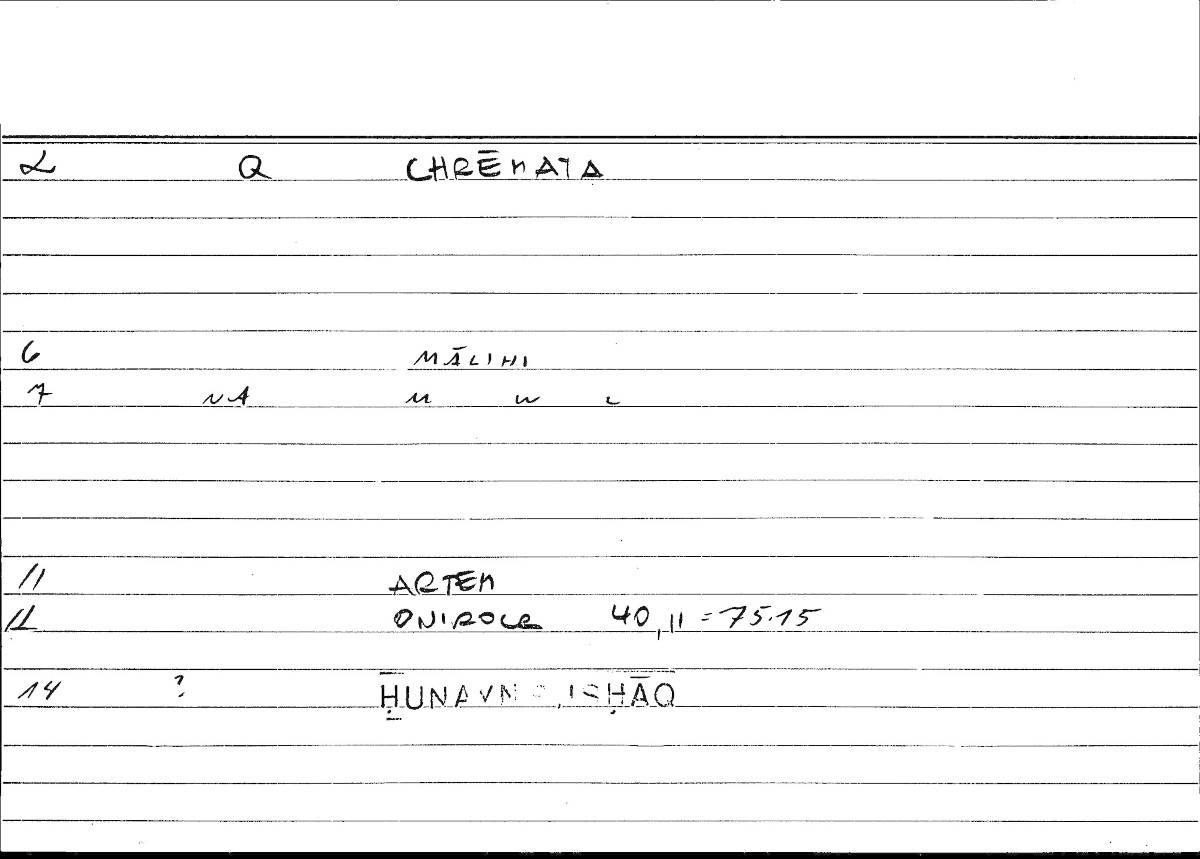 L Q CHRĒMATA
6 MĀLIHI
7 NA M W L
11 ARTEM
12 ONIROCR 40,11 = 75.15
14 ? ḤUNAYN ISḤĀQ